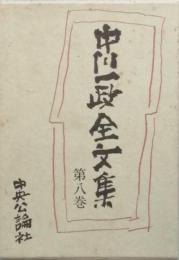 中川一政全文集
第八巻
中央公論社